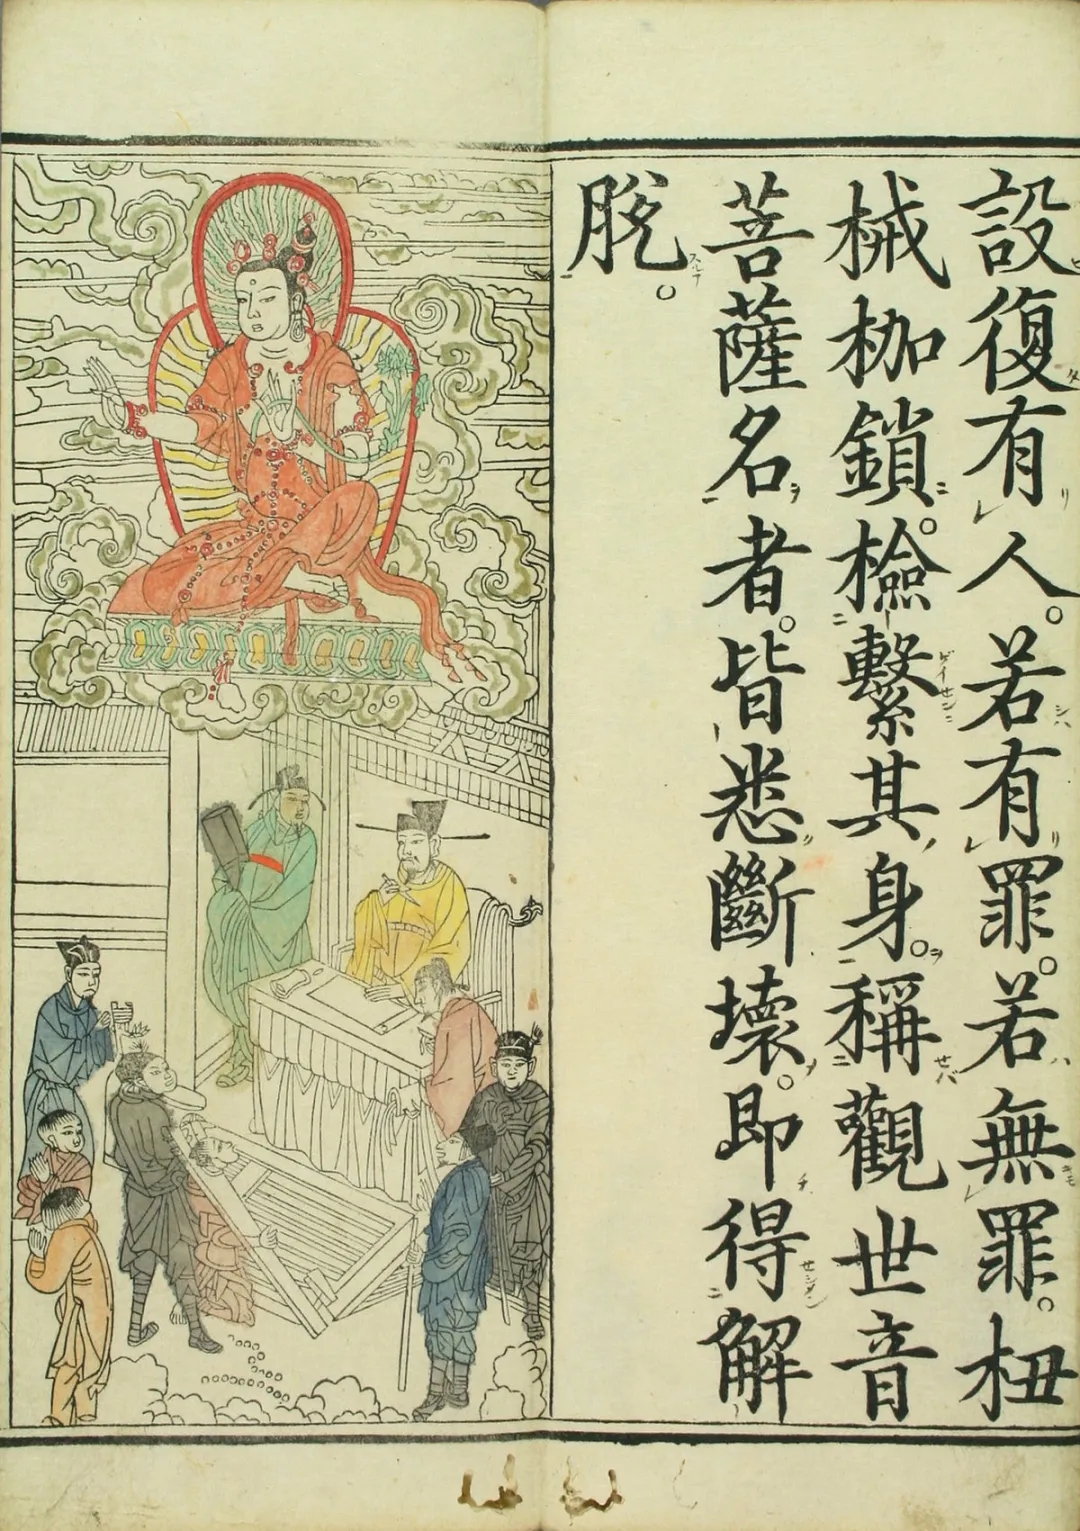 設復有人。若有罪。若無罪。杻
械枷鎖。檢繫其身。稱觀世音
菩薩名者。皆悉斷壞。即得解
脫。